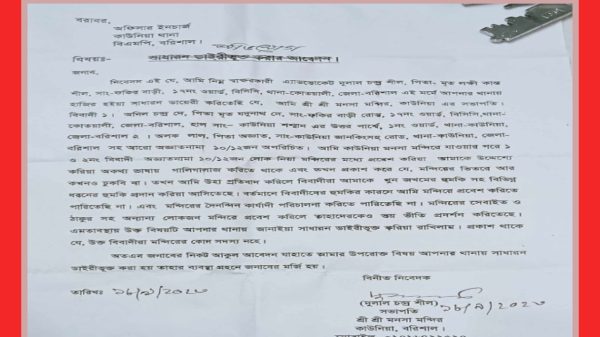 বরাবর,
অফিসার ইনচার্জ
কাউনিয়া থানা
বিএমপি, বরিশাল।
বিষয়ঃ- সাধারন ডাইরীভুক্ত করার আবেদন।
জনাব,
নিবেদন এই যে, আমি নিম্ন স্বাক্ষরকারী এ্যাডভোকেট দুলাল চন্দ্র শীল, পিতা- মৃত লক্ষী কান্ত
শীল, সাং-ফকির বাড়ী রোড, ১৭নং ওয়ার্ড, বিসিসি, থানা-কোতয়ালী, জেলা-বরিশাল এই মর্মে আপনার থানায়
হাজির হইয়া সাধারন ডায়েরী করিতেছি যে, আমি শ্রী শ্রী মনসা মন্দির, কাউনিয়া এর সভাপতি।
বিবাদী ১। অনিল চন্দ্র দে, পিতা মৃত যদুনাথ দে, সাং-ফকির বাড়ী রোড, ১৭নং ওয়ার্ড, বিসিসি,থানা-
কোতয়ালী, জেলা-বরিশাল, হাল সাং- কাউনিয়া শশ্মান এর উত্তর পার্শ্বে, ১নং ওয়ার্ড, থানা-কাউনিয়া,
জেলা-বরিশাল ২। অলক লাল, পিতা অজ্ঞাত, সাং-কাউনিয়া জানকিসেহ্ রোড, থানা-কাউনিয়া, জেলা-
বরিশাল সহ আরো অজ্ঞাতনামা ১০/১২জন অপরিচিত। আমি কাউনিয়া মনসা মন্দিরে যাওয়ার পরে ১
ও ২নং বিবাদী অজ্ঞাতনামা ১০/১২জন লোক নিয়া মন্দিরের মধ্যে প্রবেশ করিয়া আমাকে উদ্দেশ্যে
করিয়া অকথ্য ভাষায় গালিগালাজ করিতে থাকে এবং তখন প্রকাশ করে যে, মন্দিরের ভিতরে আর
কখনও ঢুকবি না। তখন আমি উহা প্রতিবাদ করিলে বিবাদীরা আমাকে খুন জখমের হুমকি সহ বিভিন্ন
ধরনের হুমকি প্রদান করিয়া আসিতেছে। বর্তমানে বিবাদীদের হুমকির কারনে আমি মন্দিরে প্রবেশ করিতে
পারিতেছি না। এবং মন্দিরের দৈনন্দিন কার্যাদী পরিচালনা করিতে পারিতেছি না। মন্দিরের সেবাইত ও
ঠাকুর সহ অন্যান্য লোকজন মন্দিরে প্রবেশ করিলে তাহাদেরকেও ভয় ভীতি প্রদর্শন করিতেছে।
এমতাবস্থায় উক্ত বিষয়টি আপনার থানায় জানাইয়া সাধারন ডাইরীভুক্ত করিয়া রাখিলাম। প্রকাশ থাকে
যে, উক্ত বিবাদীরা মন্দিরের কোন সদস্য নহে।
অতএব জনাবের নিকট আকুল আবেদন যাহাতে আমার উপরোক্ত বিষয় আপনার থানায় সাধারন
ডাইরীভুক্ত করা হয় তাহার ব্যবস্থা গ্রহনে জনাবের মর্জি হয়।
বিনীত নিবেদক
তারিখঃ ১৮/৯/২০২৩
১৮/৯/২০২৩
(দুলাল চন্দ্র শীল)
সভাপতি
শ্রী শ্রী মনসা মন্দির
কাউনিয়া, বরিশাল।